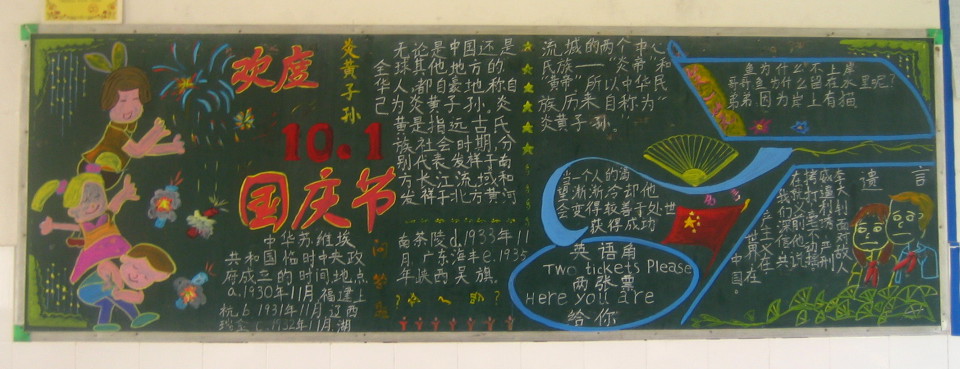 欢度
10.1
国庆节
炎黄子孙
无论是中国还是
全球其他地方的
华人,都自豪地称自
己为炎黄子孙.炎
黄是指远古氏
族社会时期,分
别代表发祥于南
方长江流域和
发祥于北方黄河
流域的两个中心
民族——"炎帝"和
"黄帝"所以中华民
族历来自称为"
炎黄子孙."
中华苏维埃
共和国临时中央政
府成立的时间地点
a.1930年11月福建上
杭.b.1931年11月江西
瑞金c.1932年11月湖
南茶陵d.1933年11
月广东海丰e.1935
年陕西吴旗.
鱼为什么不上岸
哥哥鱼为什么留在水里呢?
弟弟因为岸上有猫
当一个人的
望渐渐冷却他
会变得较善于处世
获得成功
英语角
Two tickets Please
两张票
Here you are
给你
遗言
李大钊面对敌人
严刑